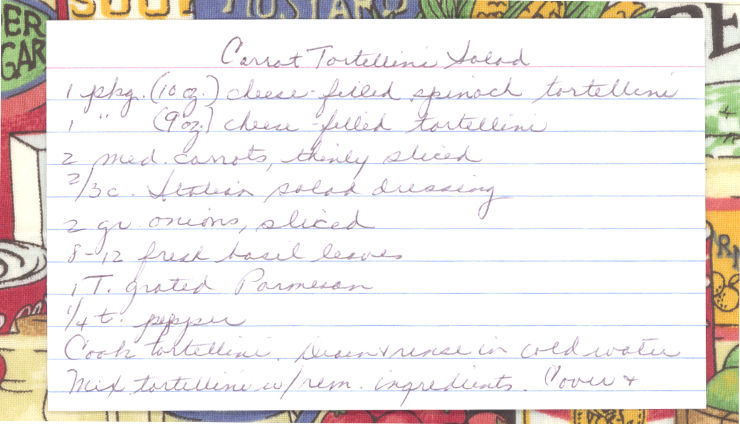 ER
GAR
SOUP
MUSTARD
Carrot Tortellini Salad
1 pkg. (10 oz.) cheese-filled spinach tortellini
1 " (9 oz.) cheese-filled tortellini
2 med. carrots, thinly sliced
2/3 c. Italian salad dressing
2 gr. onions, sliced
8-12 fresh basil leaves
1 T. grated Parmesan
1/4 t. pepper
Cook tortellini. Drain & rinse in cold water
Mix tortellini w/ rem. ingredients. Cover &